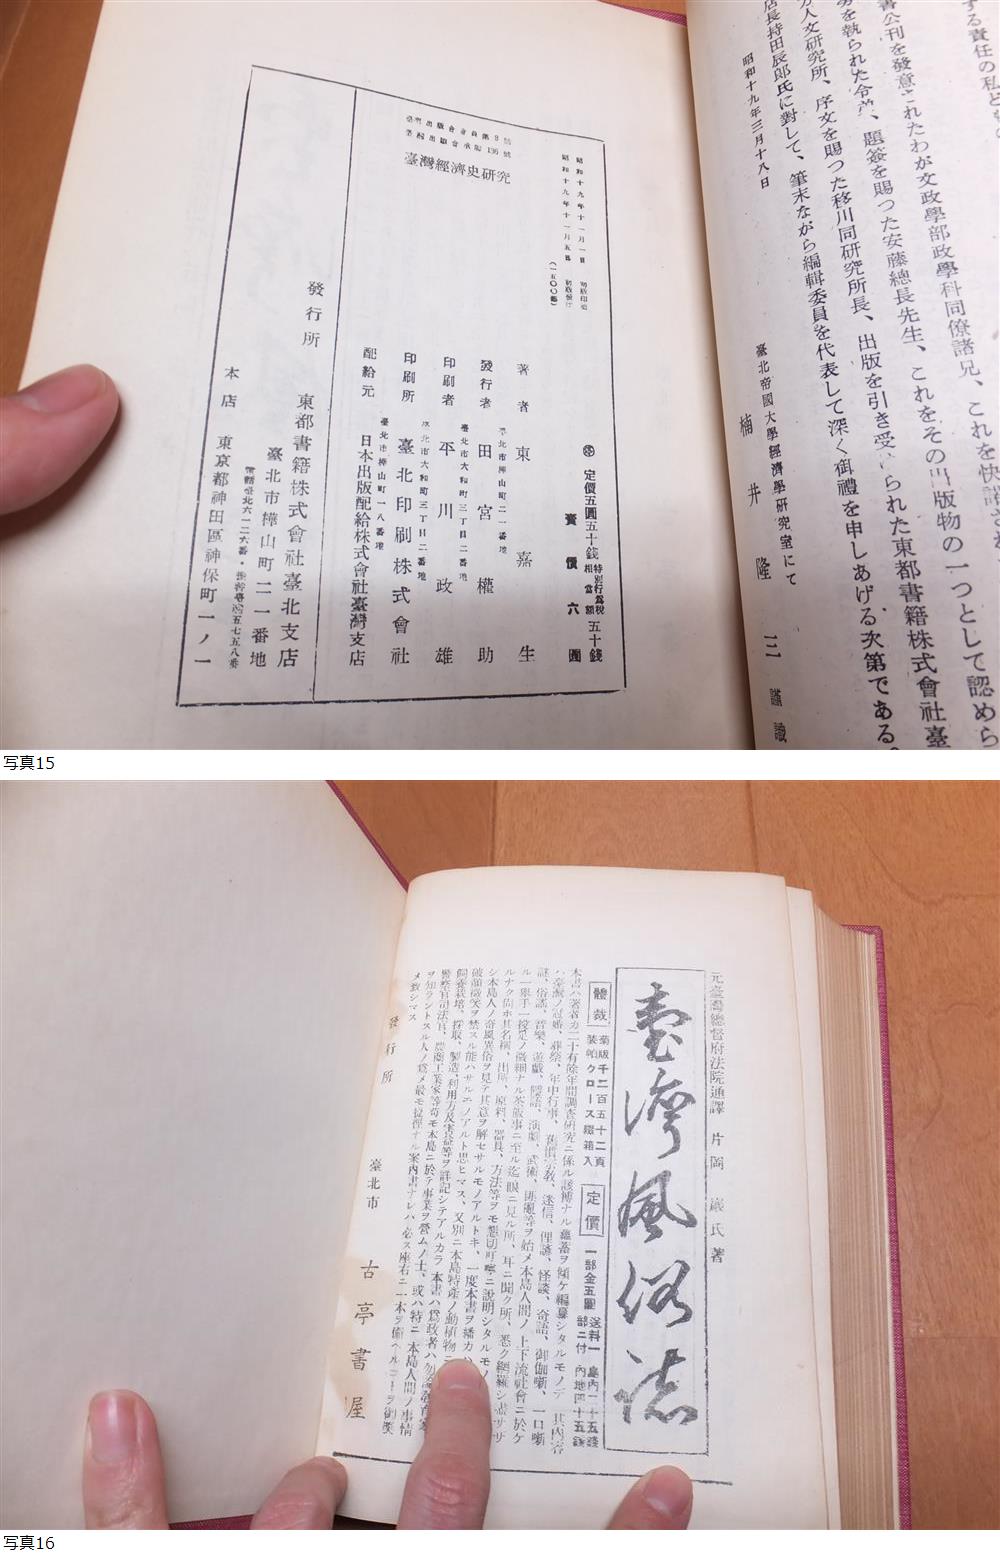 する責任の私ども
書公刊を發意されたわが文政學部政學科同僚諸兄、これを快諾され
勞を執られた令弟、題簽を賜つた安藤總長先生、これをその出版物の一つとして認めら
方人文研究所、序文を賜つた移川同研究所長、出版を引き受けられた東都書籍株式會社臺
店長持田辰郎氏に對して、筆末ながら編輯委員を代表して深く御禮を申しあげる次第である。
昭和十九年三月十八日
臺北帝國大學經濟學研究室にて
楠井隆三 謹識
昭和十九年十一月一日 初版印刷
昭和十九年十一月五日 初版發行
(一五〇〇部)
臺灣出版會會員第9號
臺灣出版會承認136號
臺灣經濟史研究
定價五圓五十錢 特別行爲稅相當額 五十錢
賣價六圓
著者 東嘉生
臺北市樺山町二一番地
發行者 田宮權助
臺北市大和町三丁目二番地
印刷者 平川政雄
臺北市大和町三丁目二番地
印刷所 臺北印刷株式會社
臺北市樺山町一八番地
配給元 日本出版配給株式會社臺灣支店
發行所 東都書籍株式會社臺北支店
臺北市樺山町二一番地
電話臺北六一二六番・振替臺灣五七五八番
本店 東京都神田區神保町一ノ一
写真15
元臺灣總督府法院通譯 片岡巖氏著
臺灣風俗誌
體裁 菊版千二百五十二頁 裝幀クロース鐵箱入
定價 一部金五圓 送料一部ニ付 島內二十五錢 內地四十五錢
本書ハ著者カ二十有餘年間調査硏究ニ係ル該博ナル蘊蓄ヲ傾ケ編纂シタルモノデ 其內容
ハ臺灣ノ冠婚、葬祭、年中行事、舊慣宗教、迷信、俚諺、怪談、奇語、御伽噺、一口噺
謎、俗謠、音樂、遊戲、隱語、演劇、武術、俳優等ヲ始メ本島人間ノ上下流社會ニ於ケ
ル一擧手一投足ノ微細ナル茶飯事ニ至ル迄眼ニ見ル所、耳ニ聞ク所、悉ク網羅シ盡サザ
ルナク尚ホ其名稱、出所、原料、器具、方法等ヲモ懇切叮嚀ニ說明シタルモノ
シ本島人ノ奇風異俗ヲ見テ其意ヲ解セサルモノアルトキ、一度本書ヲ繙カ
破顏微笑ヲ禁スル能ハサルモノアルト思ヒマス、又別ニ本島特產ノ動植物ニ
飼養栽培、採取、製造、利用方法及實益等ヲ詳記シテアルカラ 本書ハ爲政者ハ勿論敎育家
警察官司法官、農商工業家等苟モ本島ニ於テ事業ヲ營ムノ士、或ハ特ニ本島人間ノ事情
ヲ知ラントスル人ノ爲メ最モ
メ致シマス
發行所 臺北市 古亭書屋
写真16